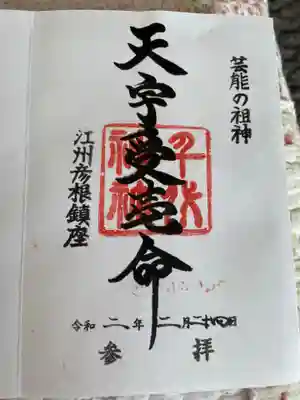 芸能の祖神
天宇受売命
千代
神社
江州彦根鎮座
令和二年二月二十四日
参拝